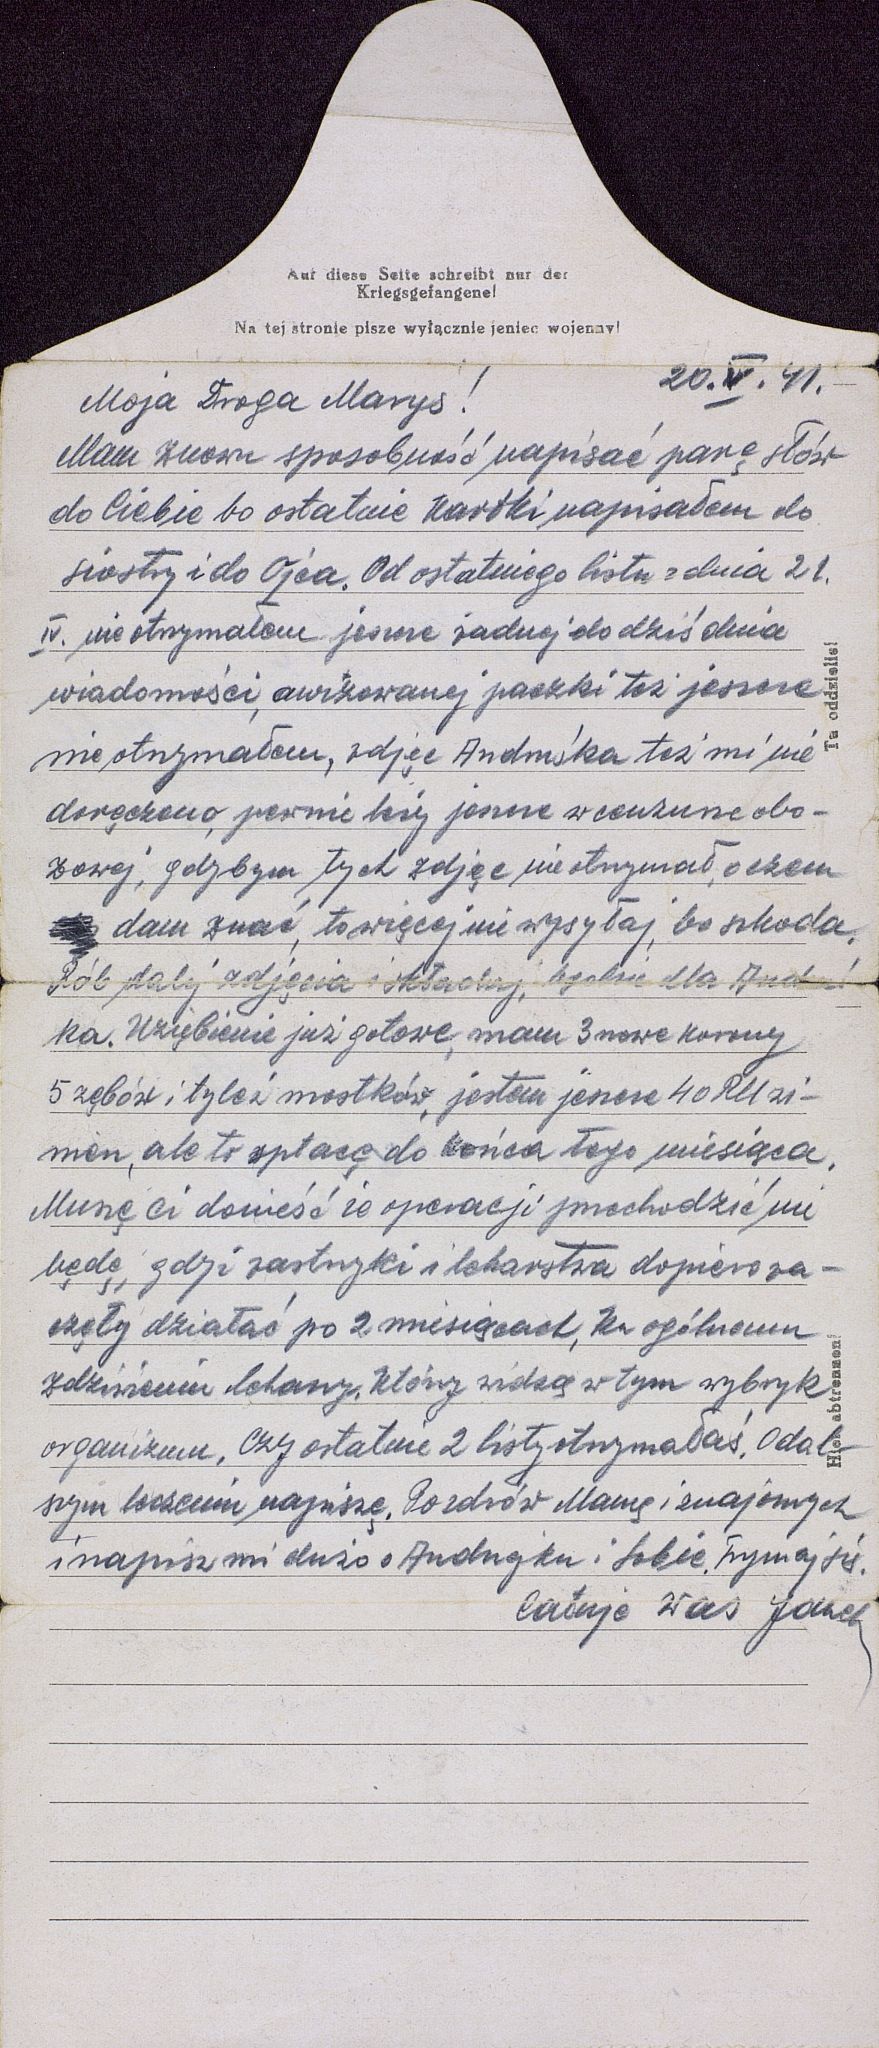 Auf diese Seite schreibt nur der
Kriegsgefangene!
Na tej stronie pisze wyłącznie jeniec wojenny!
20. V. 41.—
Moja Droga Marys!
Mam znowu sposobność napisać parę słów
do Ciebie bo ostatnie kartki napisałem do
siostry i do Ojca. Od ostatniego listu z dnia 21.
IV. nie otrzymałem jeszcze żadnej do dziś dnia
wiadomości, awizowanej paczki też jeszcze
nie otrzymałem, zdjęć Andruśka też mi nie
doręczono, pewnie leży jeszcze w cenzurze obo-
zowej, gdybym tych zdjęć nie otrzymał, o czem
dam znać, to więcej nie wysyłaj, bo szkoda.
Rób dalej zdjęcia i składaj, będzie dla Andruś
ka. Uzębienie już gotowe, mam 3 nowe korony
5 zębów i tyleż mostków, jestem jeszcze 40 RM wi-
nien, ale to spłacę do końca tego miesiąca.
Muszę Ci donieść że operacji przechodzić nie
będę, gdyż zastrzyki i lekarstwa dopiero za-
częły działać po 2 miesiącach, ku ogólnemu
zdziwieniu lekarzy, którzy widzą w tym wybryk
organizmu. Czy ostatnie 2 listy otrzymałaś. O dal-
szym leczeniu napiszę. Pozdrów Mamę i znajomych
i napisz mi dużo o Andrzejku i Sobie. Trzymaj się.
Całuję Was Janek
Tu oddzielić!
Hier abtrennen!